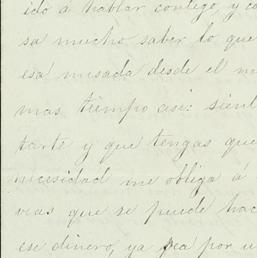 ido á hablar contigo, y co
sa mucho saber lo que
esa musada desde el m
mas tiempo asi: sient
tarte y que tengas que
necesidad me obliga á
vias que se puede hac
ese dinero, ya sea por u